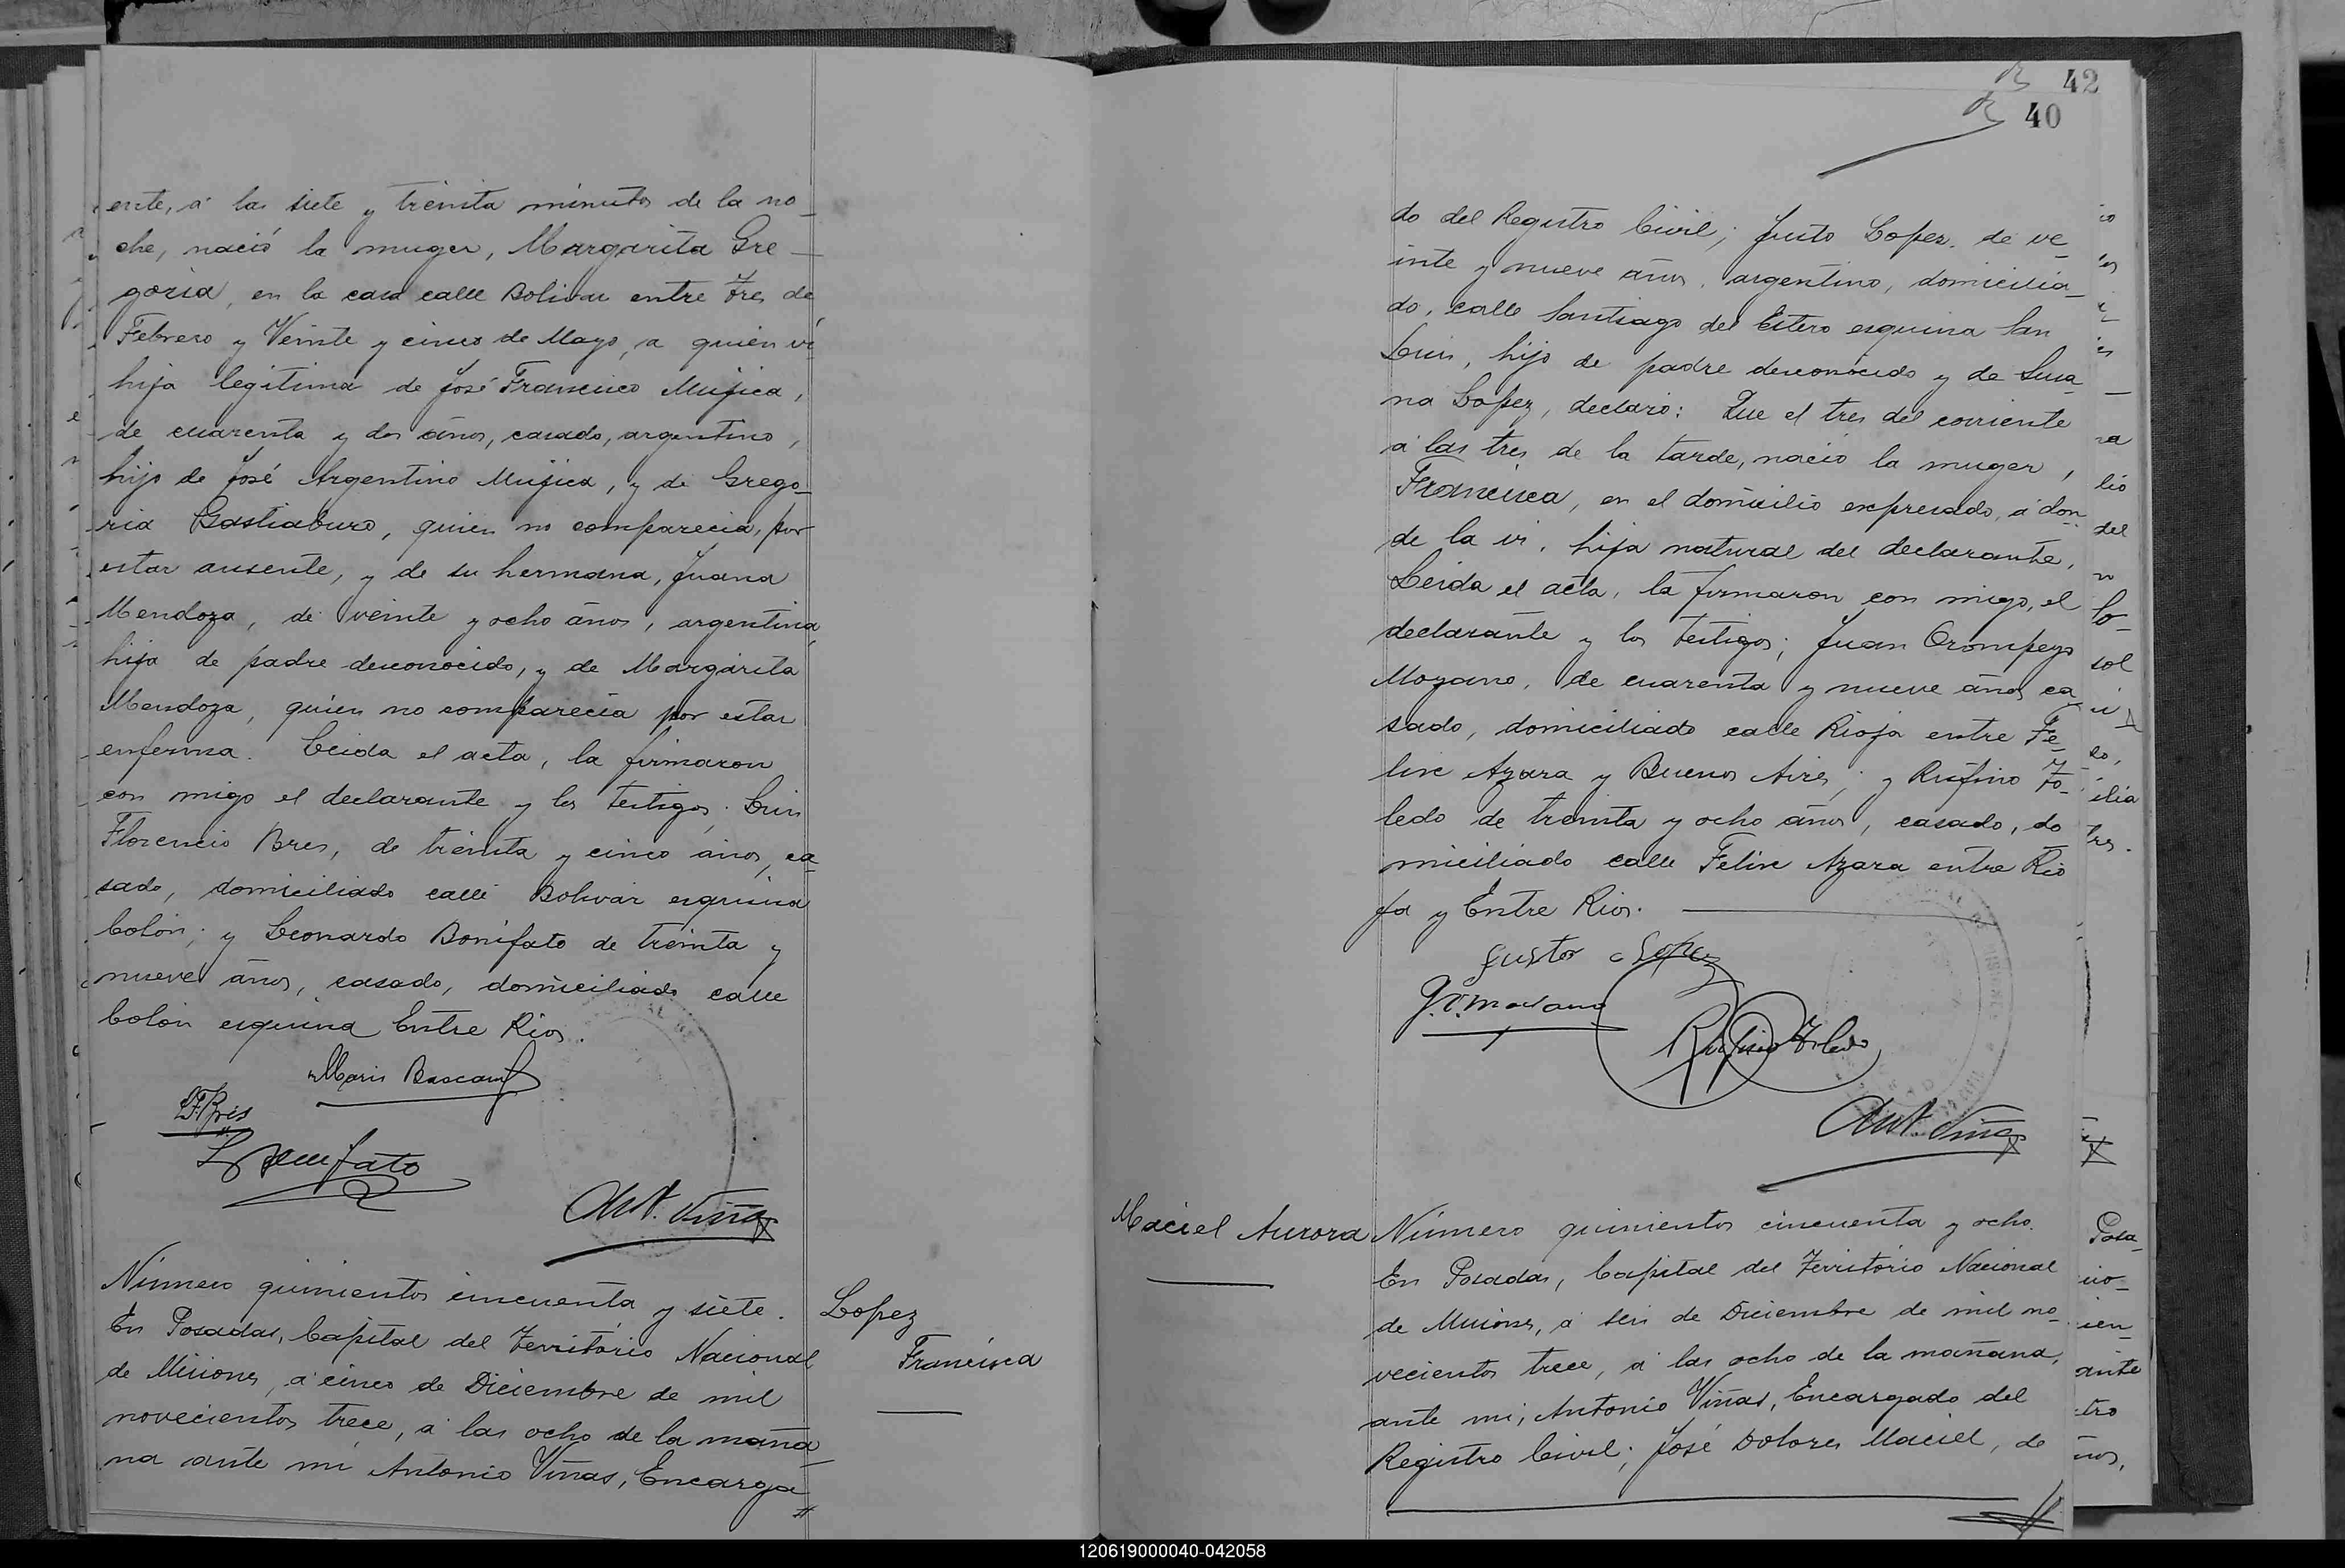 ente, á las siete y treinta minutos de la no-
che, nació la muger, Margarita Gre-
goria, en la casa calle Bolivar entre tres de
Febrero y Veinte y cinco de Mayo, a quien ví
hija legítima de José Francisco Mujica,
de cuarenta y dos años, casado, argentino,
hijo de José Argentino Mujica, y de Grego-
ria Gastiaburo, quien no comparecia, por
estar ausente, y de su hermana, Juana
Mendoza, de veinte y ocho años, argentina
hija de padre desconocido, y de Margarita
Mendoza, quien no comparecia por estar
enferma. Leida el acta, la firmaron
con migo el declarante y los testigos, Luis
Florencio Bres, de treinta y cinco años, ca-
sado, domiciliado calle Bolivar esquina
Colón; y Leonardo Bonifato de treinta y
nueve años, casado, domiciliado calle
Colón esquina Entre Rios.
Mario
L.F. Bres
L. Bonifato
Ant. Viñas
Número quinientos cincuenta y siete.
En Posadas, Capital del Territorio Nacional
de Misiones, a cinco de Diciembre de mil
novecientos trece, á las ocho de la maña-
na ante mí Antonio Viñas, Encarga
Lopez
Francisca
42
40
do del Registro Civil; Justo Lopez, de ve-
inte y nueve años, argentino, domicilia-
do, calle Santiago del Estero esquina San
Luis, hijo de padre desconocido y de Susa-
na Lopez, declaró: Que el tres del corriente
á las tres de la tarde, nació la muger,
Francisca, en el domicilio expresado, á don-
de la vi, hija natural del declarante,
Leida el acta, la firmaron con migo, el
declarante y los testigos; Juan Orompeyo
Moyano, de cuarenta y nueve años ca
sado, domiciliado calle Rioja entre Fe-
lix Azara y Buenos Aires; y Rufino To-
ledo de treinta y ocho años, casado, do
miciliado calle Felix Azara entre Rio
ja y Entre Rios.
Justo Lopez
J.O. Moyano
Rufino Toledo
Ant. Viñas
Maciel Aurora
Número quinientos cincuenta y ocho.
En Posadas, Capital del Territorio Nacional
de Misiones, a seis de Diciembre de mil no-
vecientos trece, á las ocho de la mañana,
ante mi, Antonio Viñas, Encargado del
Registro Civil; José Dolores Maciel, de
120619000040-042058